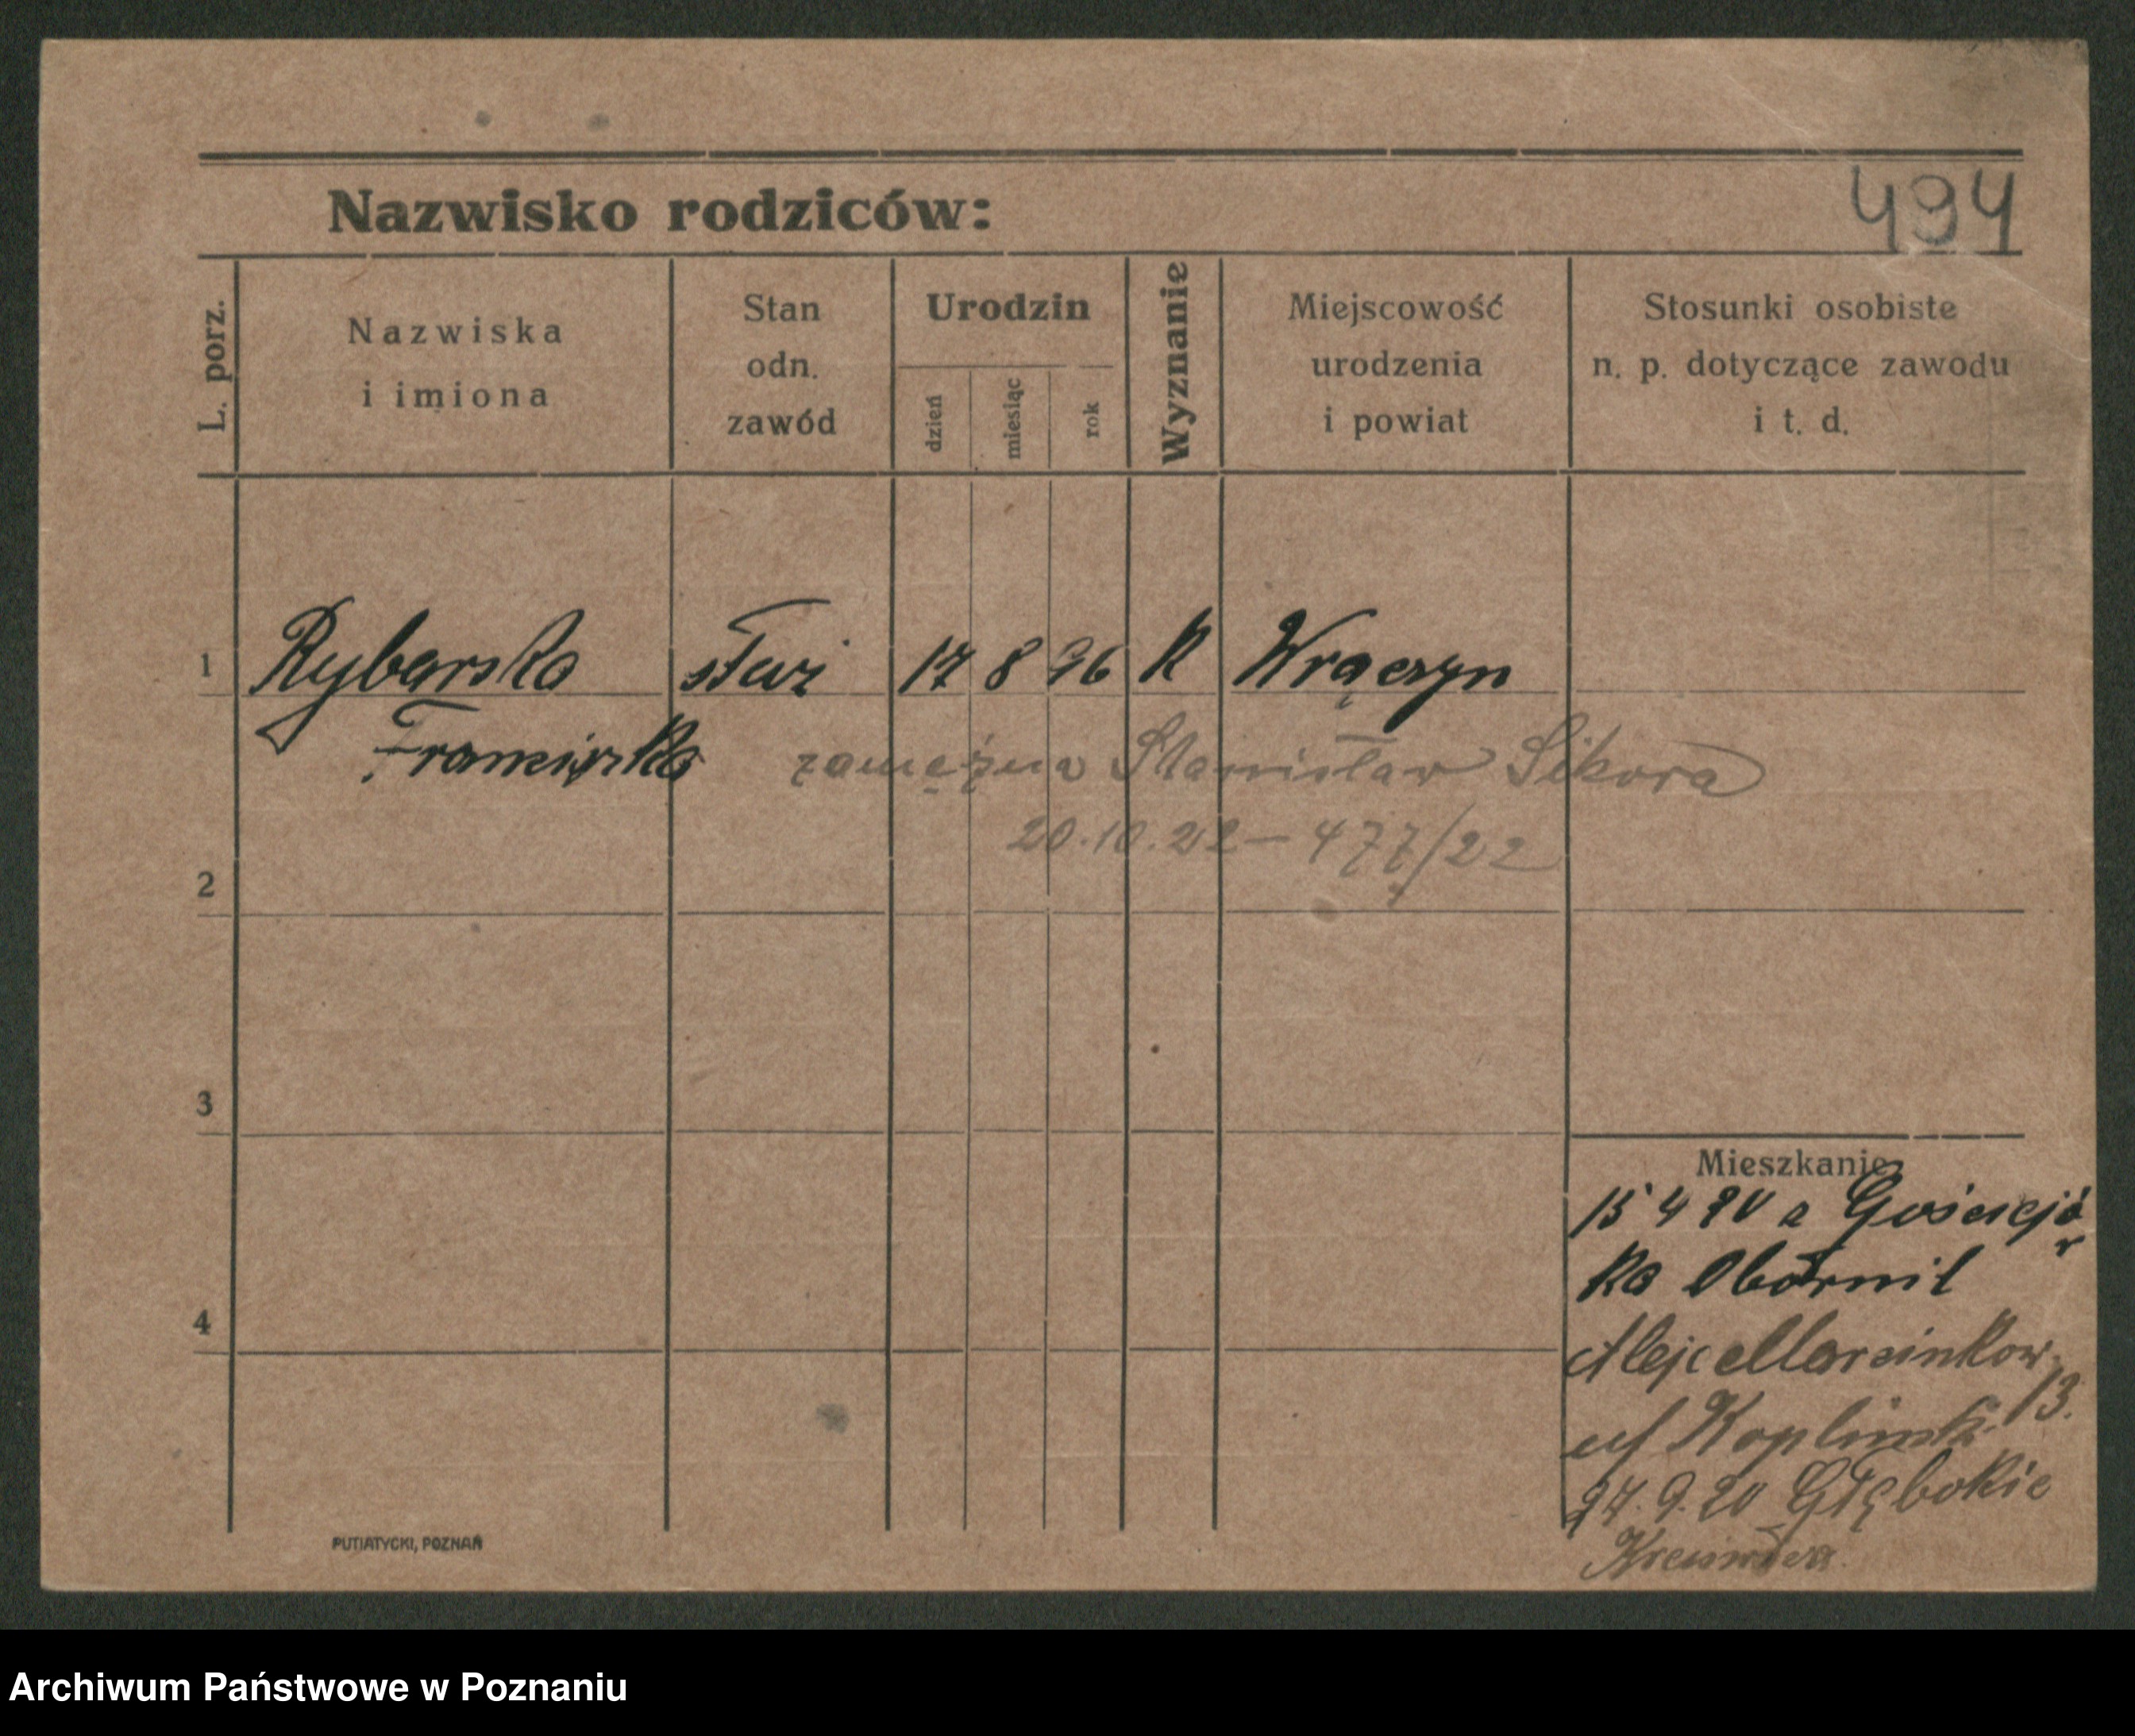 Nazwisko rodziców:
494
L. porz.
Nazwiska
i imiona
Stan
odn.
zawód
Urodzin
dzień
miesiąc
rok
Wyznanie
Miejscowość
urodzenia
i powiat
Stosunki osobiste
n. p. dotyczące zawodu
i t. d.
1 Rybarska 17 8 96 K Wrączyn
Franciszka zamężna Stanisław Sikora
20.10.22 – 477/22
2
3
4
Mieszkanie
15 4 20 z Gościejó
w
ka Obornik
Aleje Marcinkow.
13.
27.9.20 Głębokie
PUTIATYCKI, POZNAŃ
Archiwum Państwowe w Poznaniu